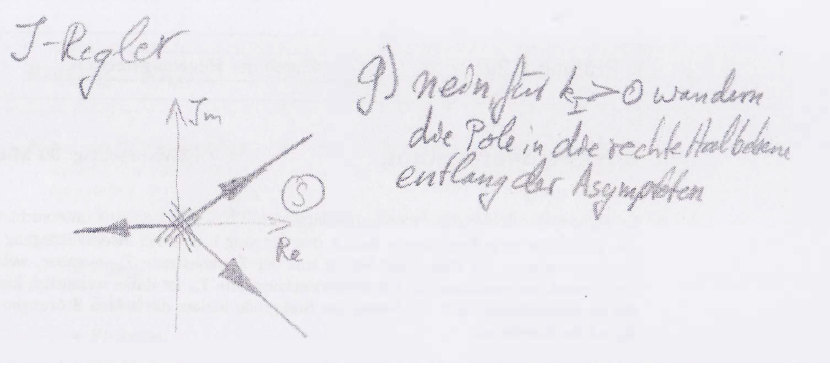 I-Regler
g) nein, für k_I > 0 wandern
die Pole in die rechte Halbebene
entlang der Asympoten
Im
S
Re